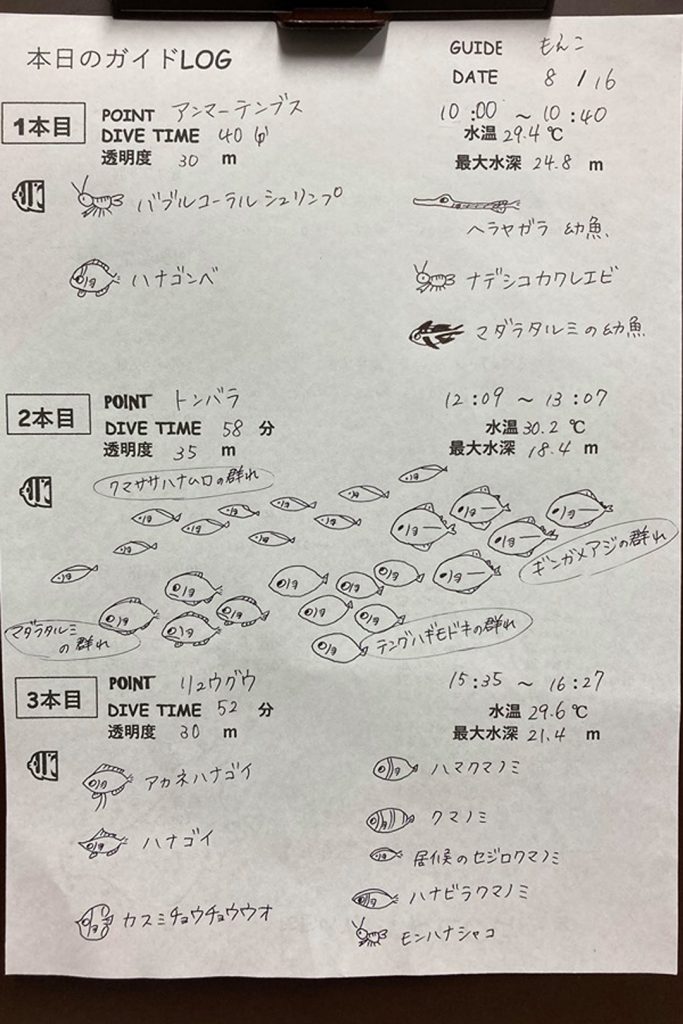 本日のガイドLOG
GUIDE もんこ
DATE 8/16
1本目
POINT アンマーテンブス
10:00 ~ 10:40
DIVE TIME 40分
水温29.4℃
透明度 30 m
最大水深 24.8 m
バブルコーラルシュリンプ
ヘラヤガラ 幼魚、
ハナゴンベ
ナデシコカクレエビ
マダラタルミの幼魚
2本目
POINT トンバラ
12:09 ~ 13:07
DIVE TIME 58 分
水温30.2℃
透明度 35 m
最大水深 18.4 m
クマササハナムロの群れ
ギンガメアジの群れ
マダラタルミ
の群れ
テングハギモドキの群れ
3本目
POINT リュウグウ
15:35 ~ 16:27
DIVE TIME 52 分
水温29.6℃
透明度 30 m
最大水深 21.4 m
アカネハナゴイ
ハマクマノミ
クマノミ
ハナゴイ
居候のセジロクマノミ
ハナビラクマノミ
カスミチョウチョウウオ
モンハナシャコ